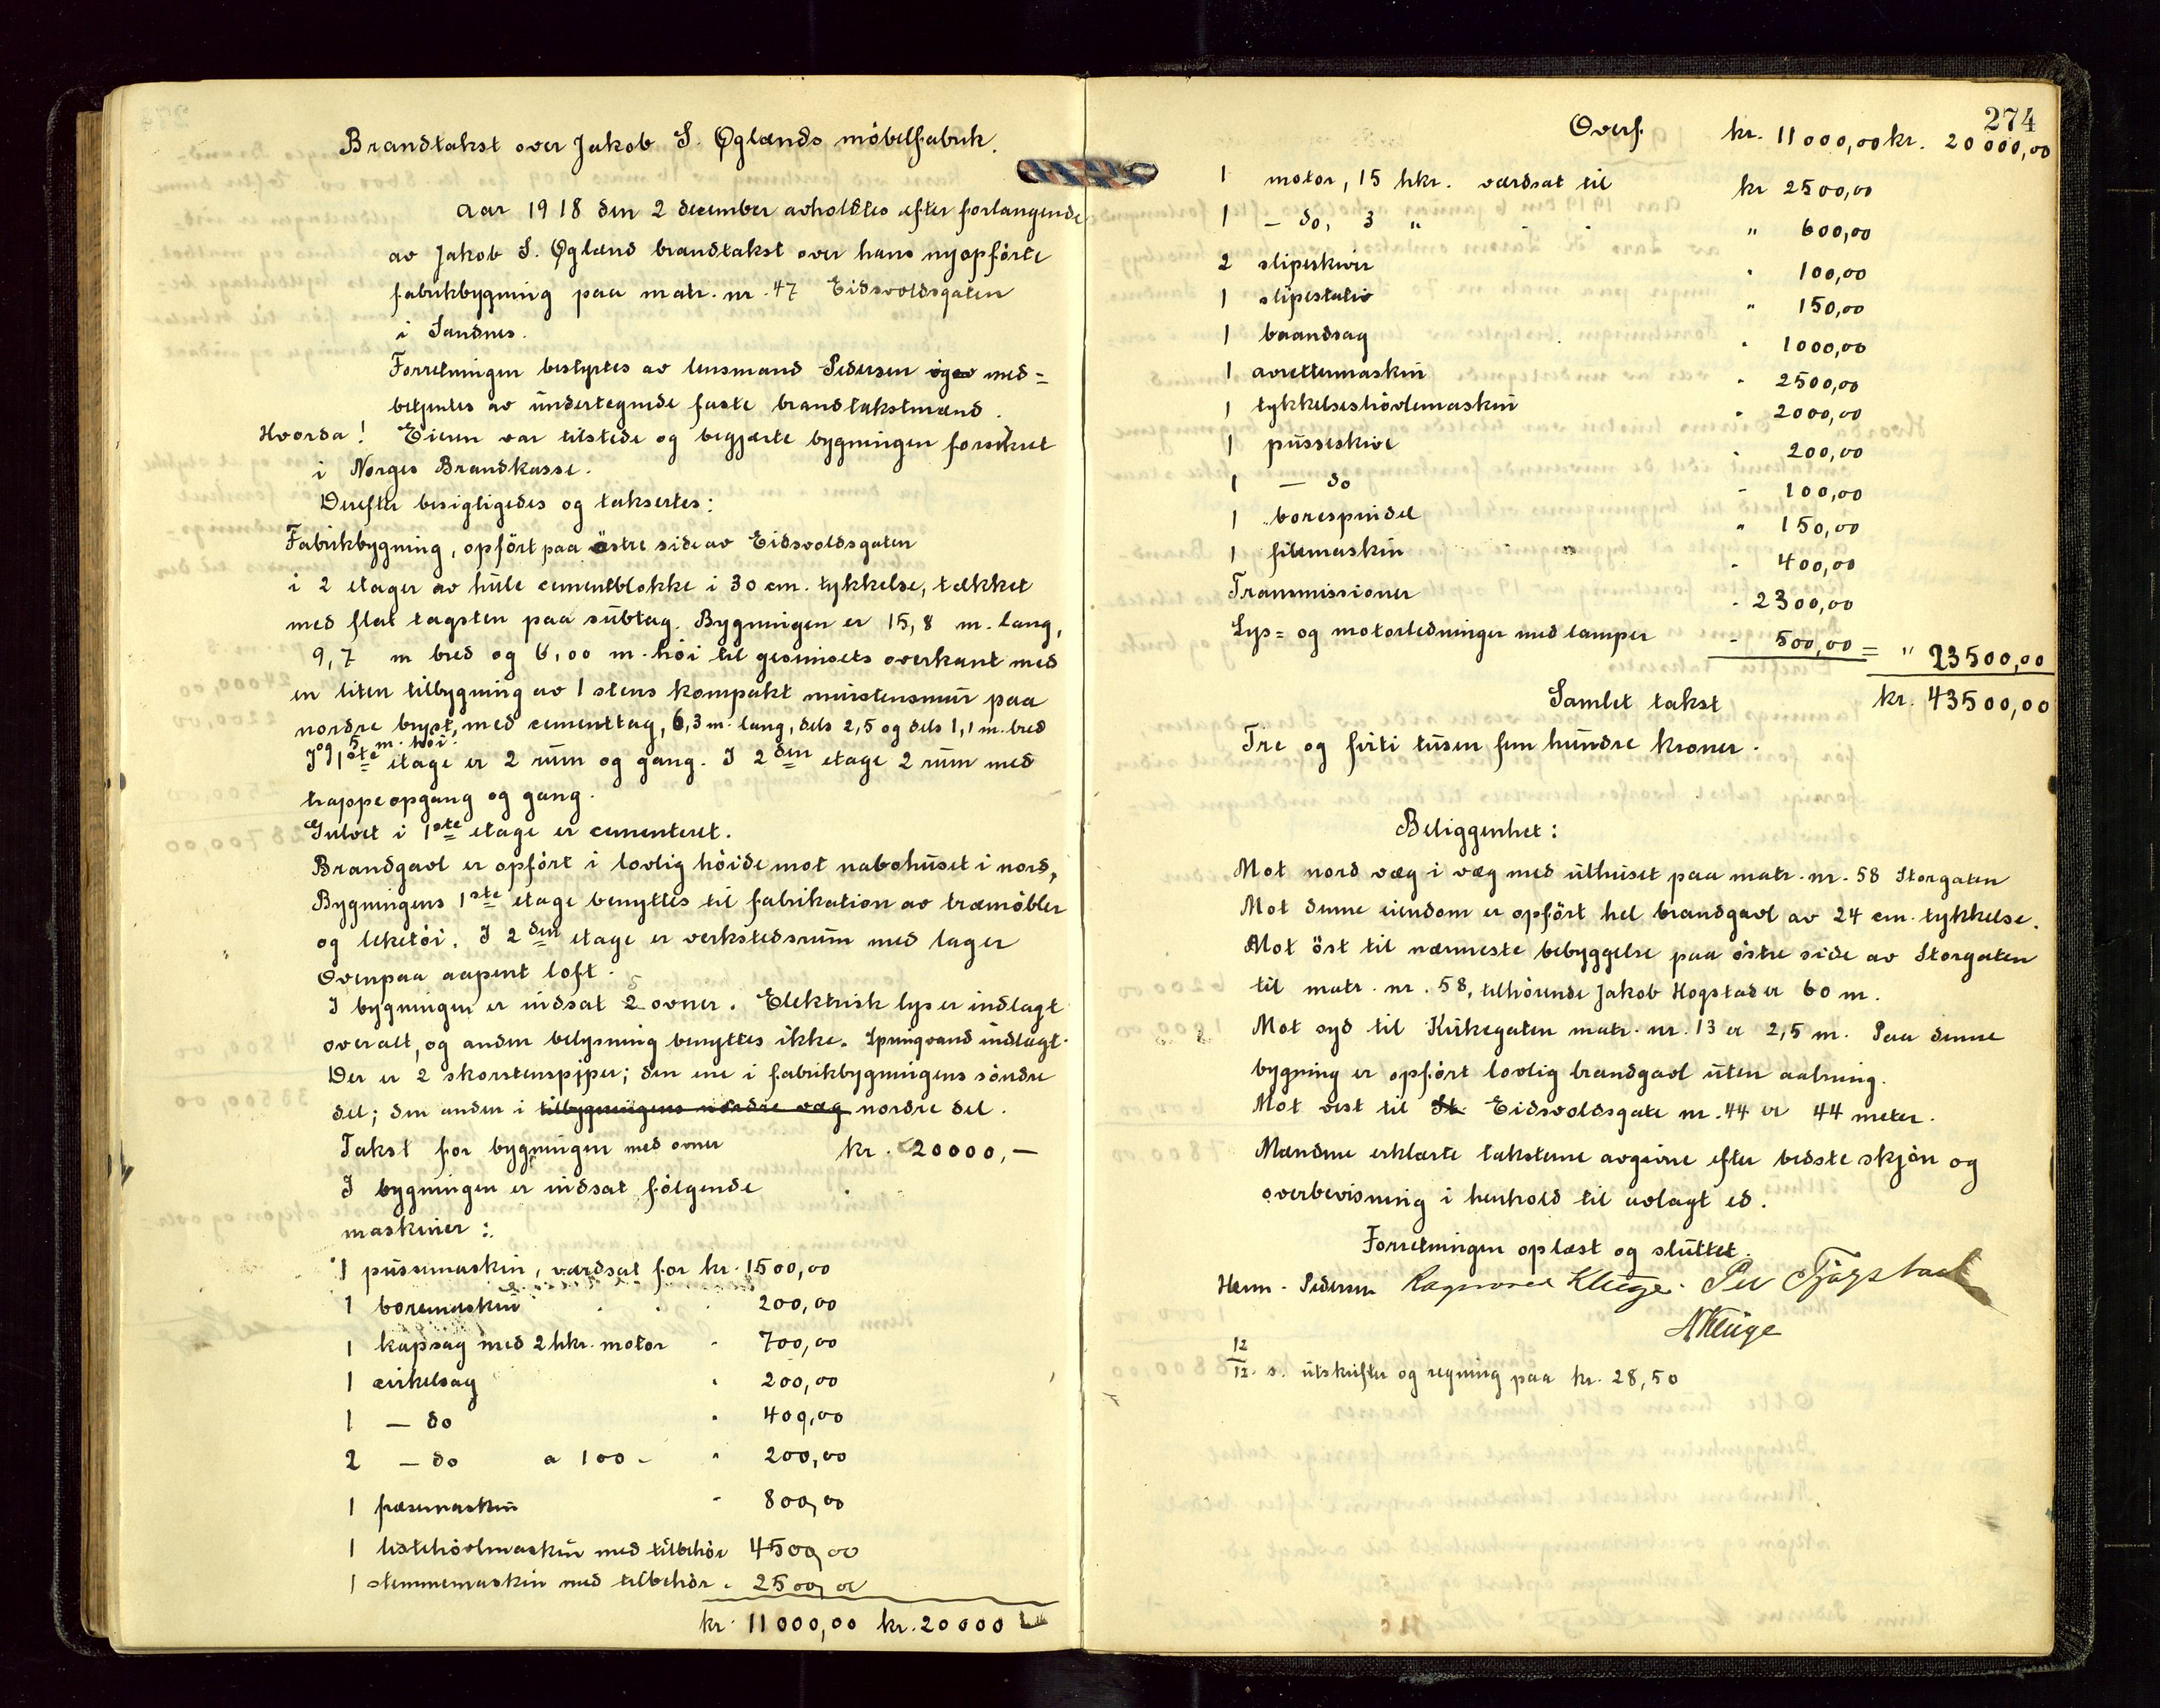 Brandtakst over Jakob S. Øglænds möbelfabrik.
Aar 1918 den 2 december avholdtes efter forlangende
av Jakob S. Øglænd brandtakst over hans nyopförte
fabrikbygning paa matr. nr. 47 Eidsvoldsgaten
i Sandnes.
Forretningen bestyrtes av lensmand Pedersen og med=
betjentes av undertegnede faste brandtakstmænd.
Hvorda! Eieren var tilstede og begjærte bygningen forsikret
i Norges Brandkasse.
Derefter besigtigedes og taksertes:
Fabrikbygning, opfört paa östre side av Eidsvoldsgaten
i 2 etager av hule cementblokke i 30 cm. tykkelse, tækket
med flat tagsten paa subtag. Bygningen er 15,8 m. lang,
9,7 m bred og 6,00 m. höi til gesimsets overkant med
en liten tilbygning av 1 stens kompakt murstensmur paa
nordre bryst, med cementtag, 6,3 m. lang, dels 2,5 og dels 1,1 m. bred
og 5 m. höi.
I 1ste etage er 2 rum og gang. I 2den etage 2 rum med
trappeopgang og gang.
Gulvet i 1ste etage er cementeret.
Brandgavl er opfört i lovlig höide mot nabohuset i nord,
Bygningens 1ste etage benyttes til fabrikation av træmöbler
og leketöi. I 2den etage er verkstedsrum med lager
Ovenpaa aapent loft.
I bygningen er indsat 5 ovner. Elektrisk lys er indlagt
overalt, og anden belysning benyttes ikke. Springvand indlagt.
Der er 2 skorstenspiper; den ene i fabrikbygningens söndre
del; den anden i tilbygningens nordre væg nordre del.
Takst for bygningen med ovner kr. 20000,—
I bygningen er indsat fölgende
maskiner:
1 pussemaskin, værdsat for kr. 1500,00
1 boremaskin " 200,00
1 kapsag med 2 hkr. motor " 700,00
1 cirkelsag " 200,00
1 — do " 400,00
2 — do a 100 - " 200,00
1 fræsemaskin " 800,00
1 listehövlmaskin med tilbehör 4500,00
1 stemmemaskin med tilbehör " 2500,00
kr. 11000,00 kr. 20000
274
Overf. kr. 11000,00 kr. 20000,00
1 motor, 15 hkr. værdsat til kr 2500,00
1 — do, 3 " " 600,00
2 slipeskiver " 100,00
1 slipestativ " 150,00
1 baandsag " 1000,00
1 avrettermaskin " 2500,00
1 tykkelseshövlemaskin " 2000,00
1 pusseskive " 200,00
1 — do " 100,00
1 borespindel " 150,00
1 filemaskin " 400,00
Transmissioner " 2300,00
Lys= og motorledninger med lamper " 500,00 = " 23500,00
Samlet takst kr. 43500,00
Tre og firti tusen fem hundre kroner.
Beliggenhet:
Mot nord væg i væg med uthuset paa matr. nr. 58 Storgaten
Mot denne eiendom er opfört hel brandgavl av 24 cm. tykkelse.
Mot öst til nærmeste bebyggelse paa östre side av Storgaten
til matr. nr. 58, tilhörende Jakob Hogstad er 60 m.
Mot syd til Kirkegaten matr. nr. 13 er 2,5 m. Paa denne
bygning er opfört lovlig brandgavl uten aabning.
Mot vest til St. Eidsvoldsgate nr. 44 er 44 meter.
Mændene erklærte taksterne avgivne efter bedste skjön og
overbevisning i henhold til avlagt ed.
Forretningen oplæst og sluttet.
Henn. Pedersen Ragnvald Kluge. Per Tjågstad
N Kluge
12/12. s. utskrifter og regning paa kr. 28,50